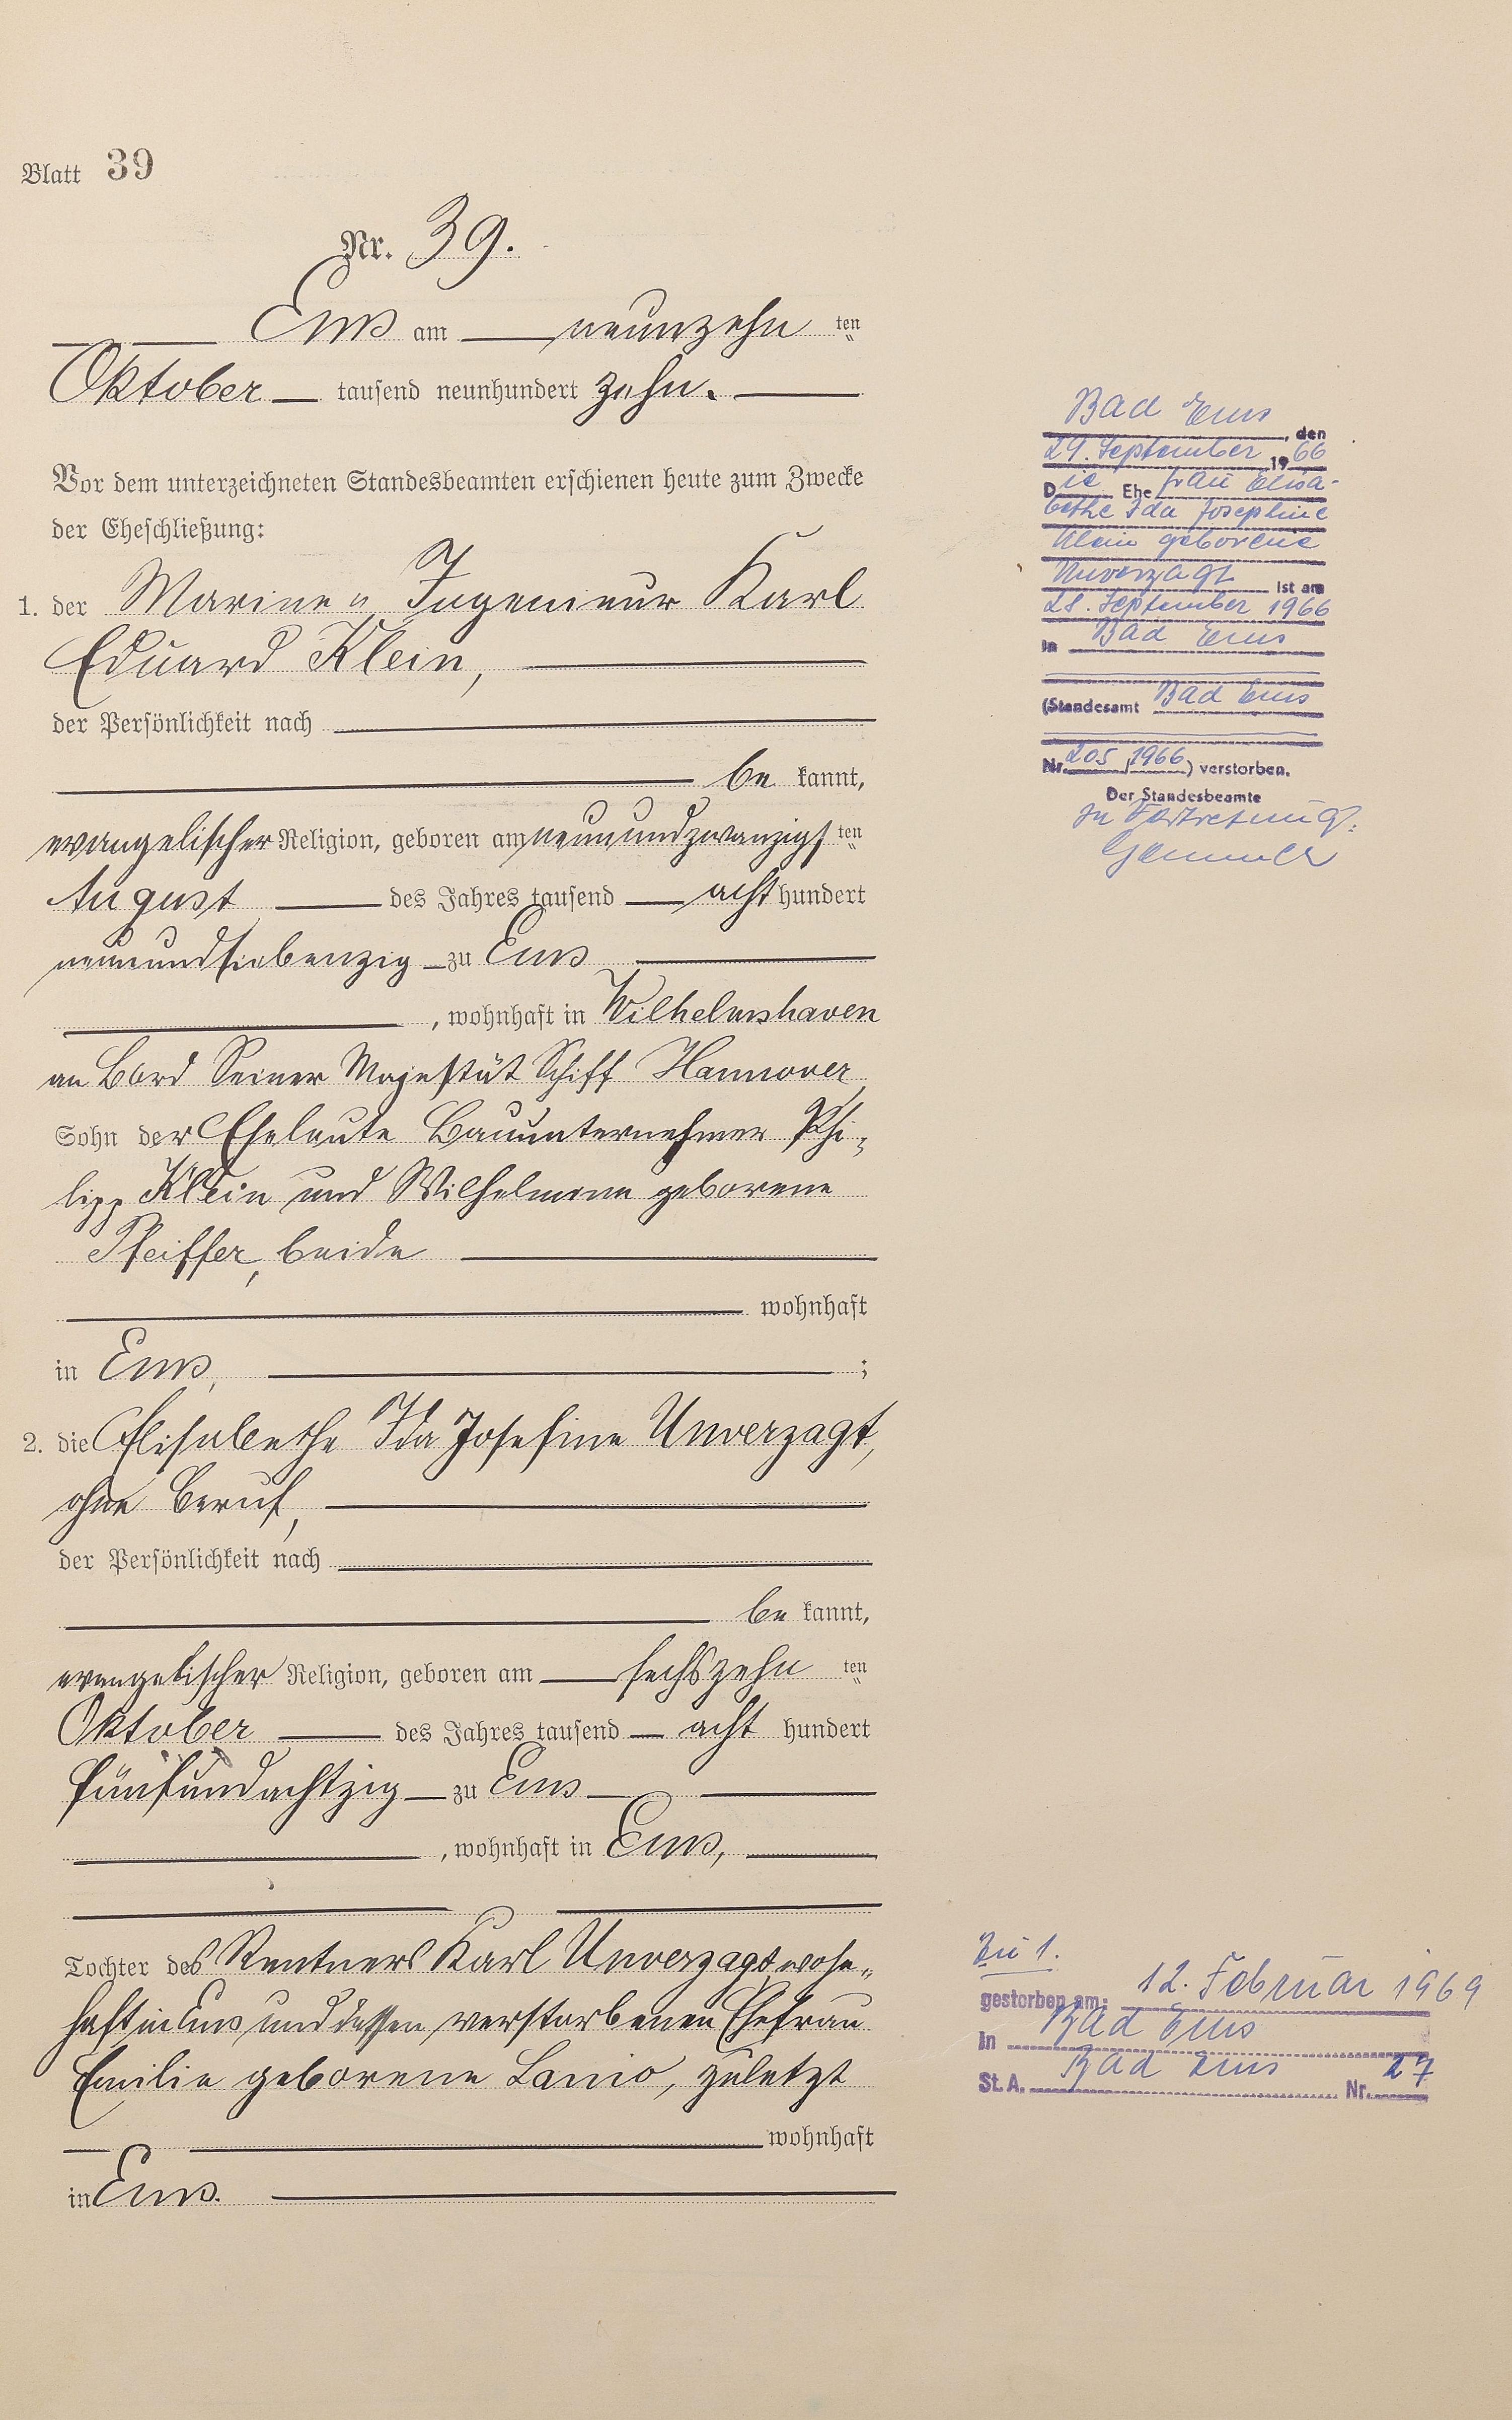 Blatt 39
Nr. 39.
Ems am neunzehnten
Oktober tausend neunhundert zehn.
Vor dem unterzeichneten Standesbeamten erschienen heute zum Zwecke
der Eheschließung:
1. der Marine-Ingenieur Karl
Eduard Klein,
der Persönlichkeit nach
bekannt,
evangelischer Religion, geboren am neunundzwanzigsten
August des Jahres tausend acht hundert
neunundsiebenzig zu Ems
, wohnhaft in Wilhelmshaven
an Bord Seiner Majestät Schiff Hannover,
Sohn der Eheleute Bauunternehmer Phi-
lipp Klein und Wilhelmine geborene
Pfeiffer, beide
wohnhaft
in Ems, ;
2. die Elisabethe Ida Josefine Unverzagt,
ohne Beruf,
der Persönlichkeit nach
bekannt,
evangelischer Religion, geboren am sechszehnten
Oktober des Jahres tausend acht hundert
fünfundachtzig zu Ems
, wohnhaft in Ems,
Tochter des Rentners Karl Unverzagt, wohn-
haft in Ems und dessen verstorbenen Ehefrau
Emilie geborene Lanio, zuletzt
wohnhaft
in Ems.
Bad Ems, den
29. September 1966
Die Ehefrau Elisa-
bethe Ida Josephine
Klein geborene
Unverzagt ist am
28. September 1966
in Bad Ems
(Standesamt Bad Ems
Nr. 205/1966) verstorben.
Der Standesbeamte
In Vertretung:
Zu 1.
gestorben am: 12. Februar 1969
In Bad Ems
St.A. Bad Ems Nr. 27